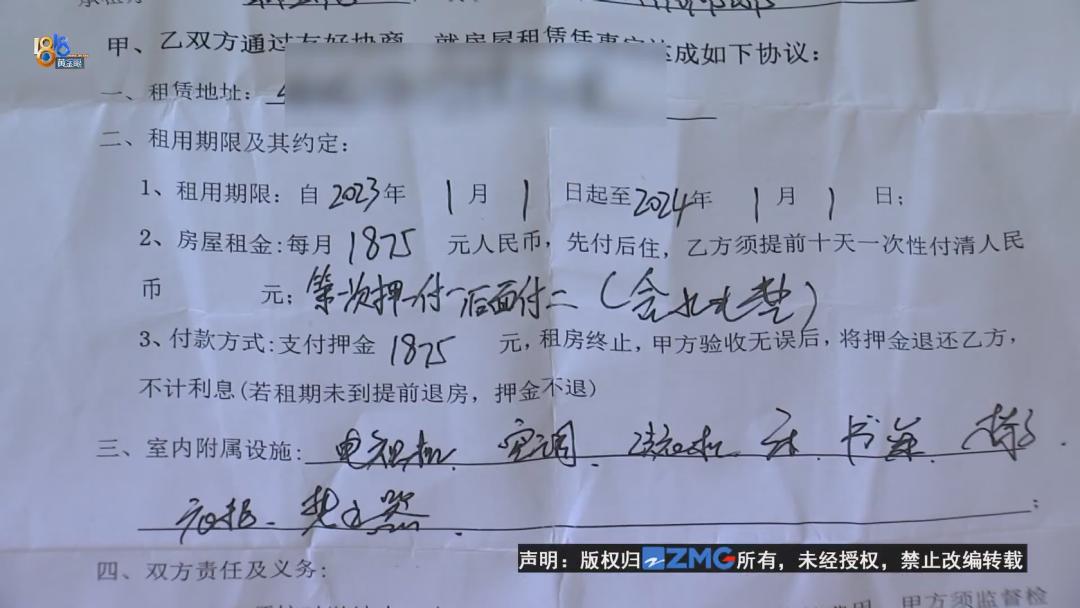 1818
黄金眼
甲、乙双方通过友好协商，就房屋租赁事宜达成如下协议：
一、租赁地址：
二、租用期限及其约定：
1、租用期限：自2023年1月1日起至2024年1月1日；
2、房屋租金：每月1875元人民币，先付后住，乙方须提前十天一次性付清人民
币 元；第一次押一付一后面付二（含水电垫）
3、付款方式：支付押金1875元，租房终止，甲方验收无误后，将押金退还乙方，
不计利息(若租期未到提前退房，押金不退)
三、室内附属设施：电视机、空调、洗衣机、床、书桌、椅子、
热水器、
声明：版权归ZMG所有，未经授权，禁止改编转载
四、双方责任及义务：
甲方须监督检